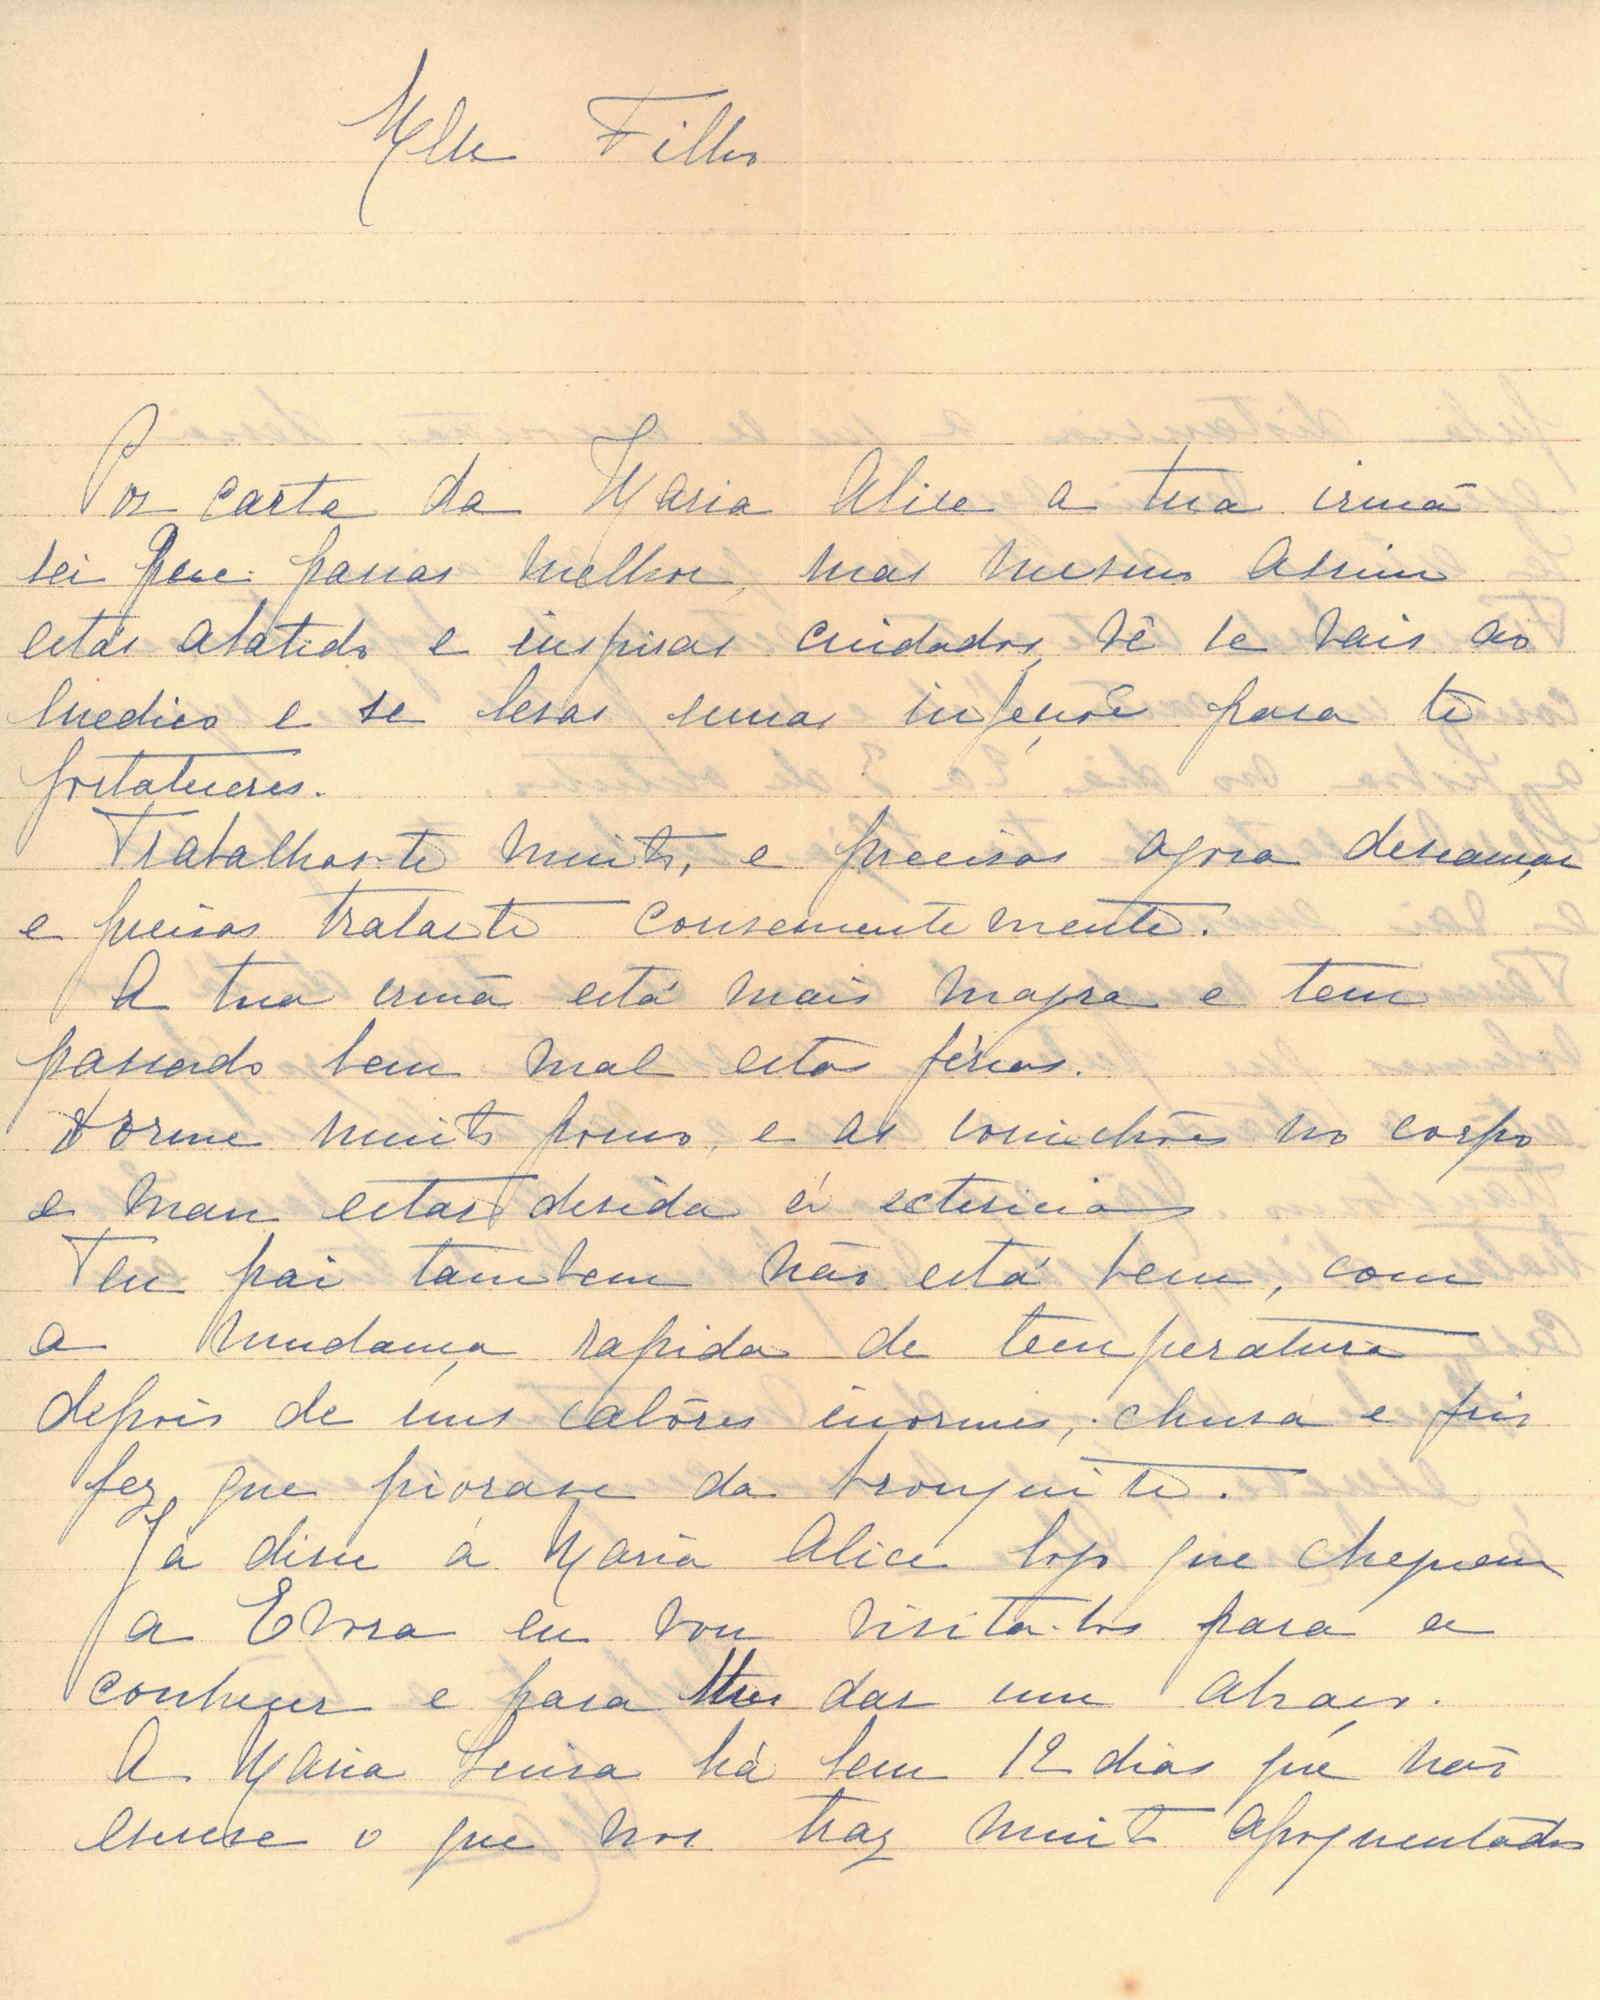 Meu Filho
Por carta da Maria Alice a tua irmã
sei que passas melhor, mas mesmo assim
estás abatido e inspiras cuidados, vê se vais ao
medico e se levas umas injeções para te
fortaleceres.
Trabalhas-te muito, e precisas agora descançar
e precisas tratar-te
A tua irmã está mais magra e tem
passado bem mal estas férias.
dorme muito pouco, e as comichões no corpo
e mau estar devida é ictericia
Teu pai tambem não está bem, com
a mudança rapida de temperatura
depois de uns calôres inormes, chuva e frio
fez que piorase da bronquite.
Já disse á Maria Alice logo que cheguem
a Evora eu vou visita-los para a
conhecer e para lhes dar um abraço.
A Maria Luisa há bem 12 dias que não
escreve o que nos traz muito apoquentados